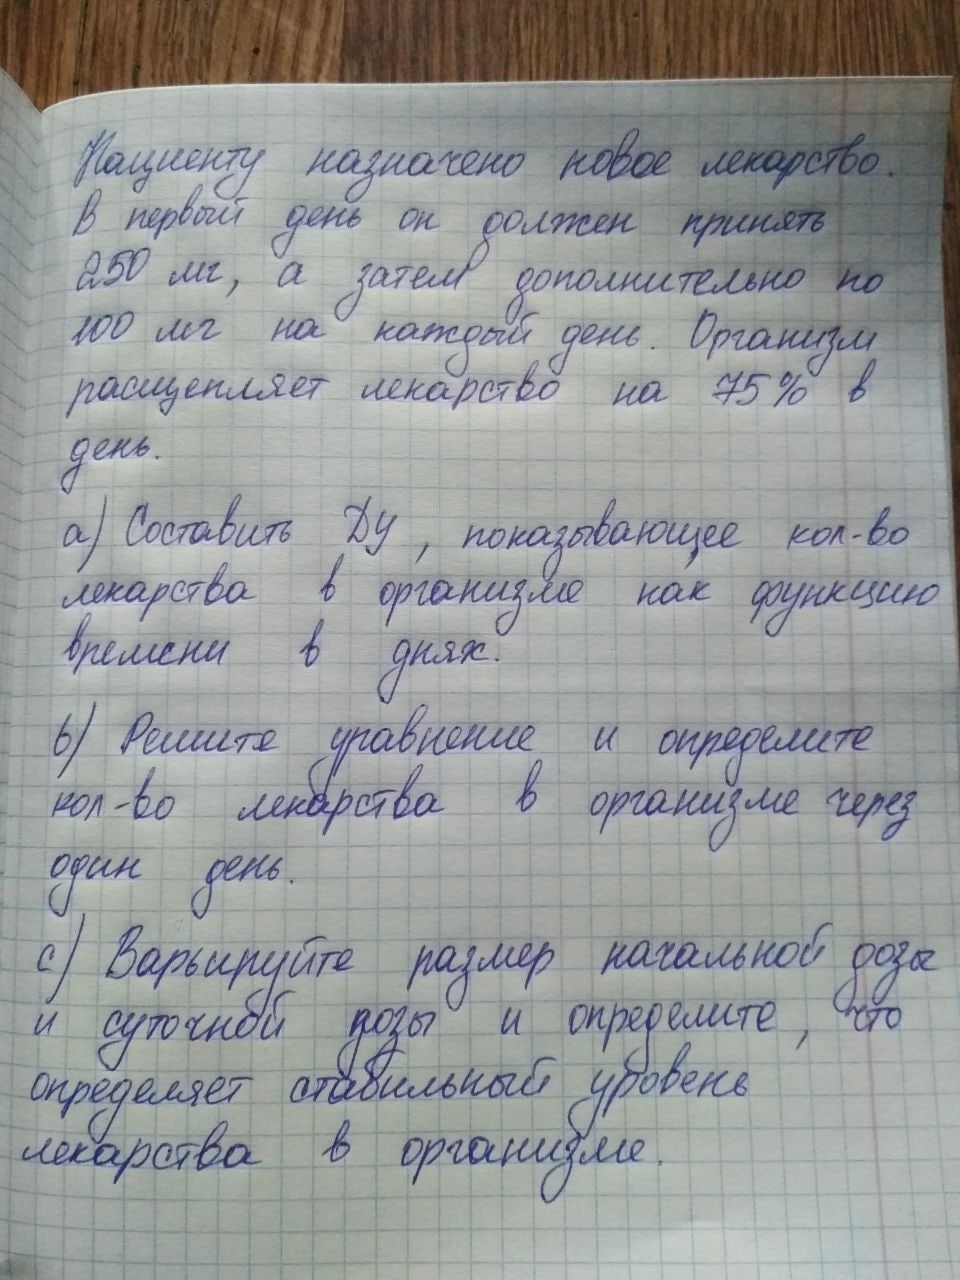 Пациенту назначено новое лекарство.
В первый день он должен принять
250 мг, а затем дополнительно по
100 мг на каждый день. Организм
расщепляет лекарство на 75% в
день.
a) Составить ДУ, показывающее кол-во
лекарства в организме как функцию
времени в днях.
b) Решите уравнение и определите
кол-во лекарства в организме через
один день.
c) Варьируйте размер начальной дозы
и суточной дозы и определите, что
определяет стабильный уровень
лекарства в организме.